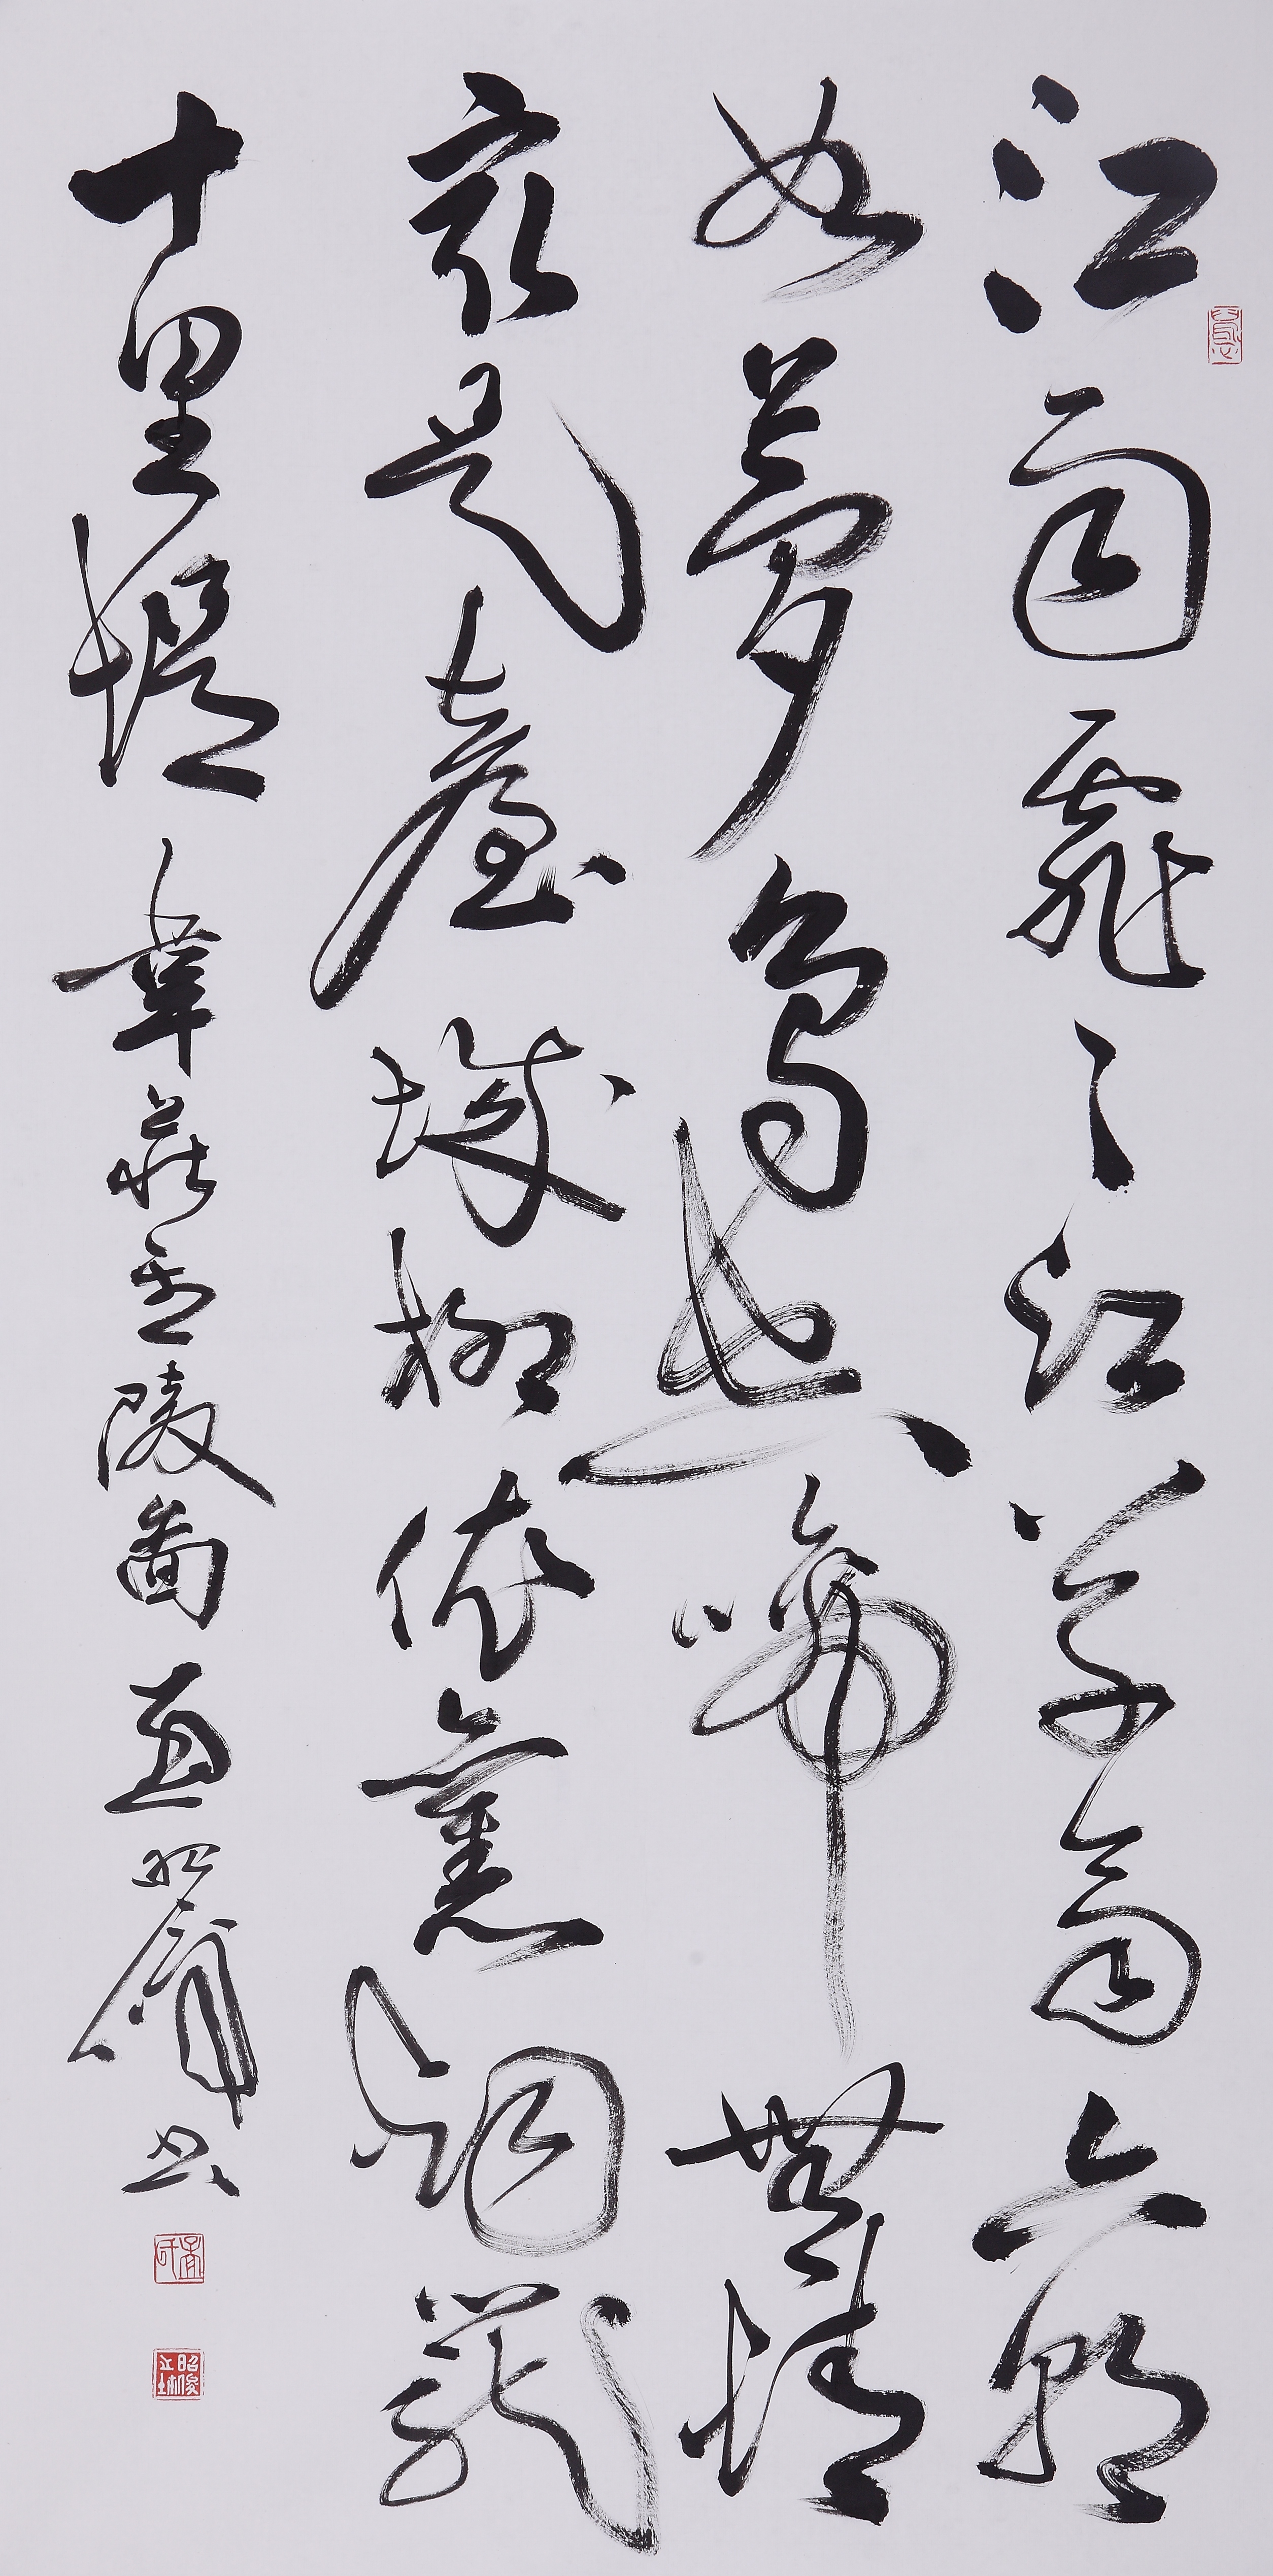 江雨霏〻江草齊六朝
如夢鳥空啼無情
最是臺城柳依舊烟籠
十里堤 韋莊金陵圖 昭 書